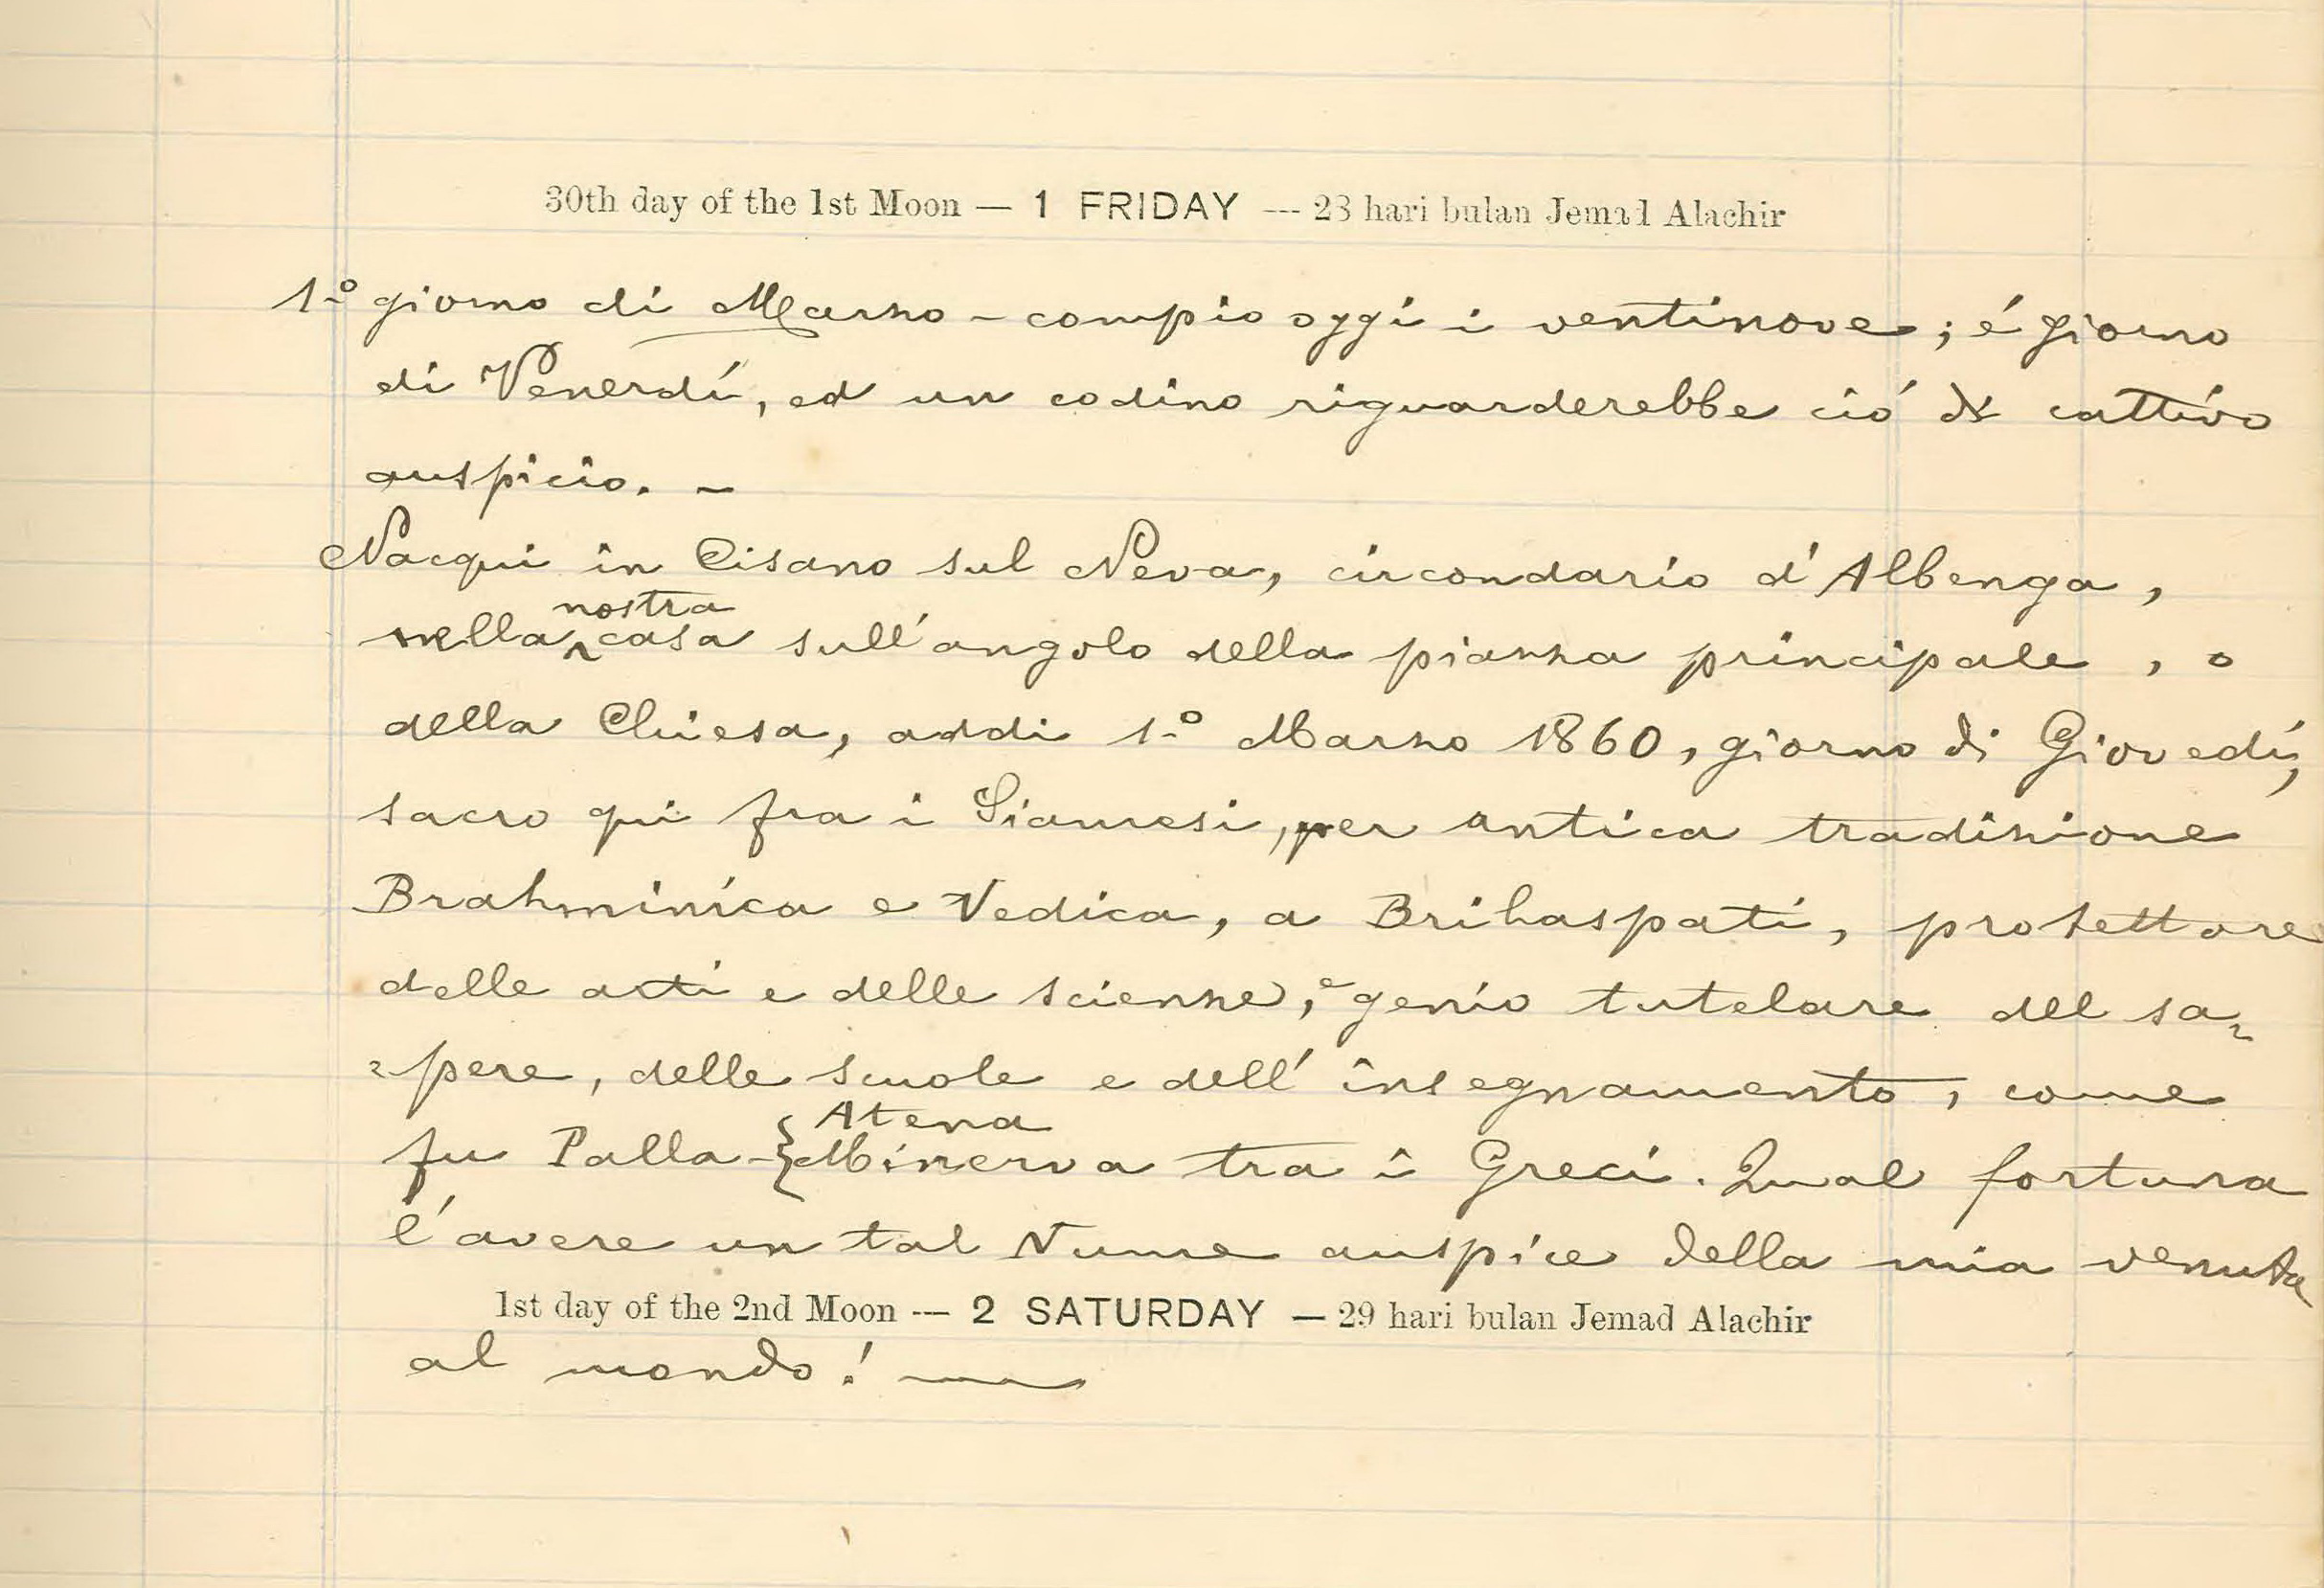 30th day of the 1st Moon — 1 FRIDAY — 28 hari bulan Jemad Alachir
1º giorno di Marzo - compio oggi i ventinove; é giorno
di Venerdí, ed un codino riguarderebbe ció di cattivo
auspicio. -
Nacqui in Cisano sul Neva, circondario d'Albenga,
nostra
nella ^ casa sull'angolo della piazza principale, o
della Chiesa, addi 1º Marzo 1860, giorno di Giovedí,
sacro qui fra i Siamesi, per antica tradizione
Brahminica e Vedica, a Brihaspati, protettore
delle arti e delle scienze, e genio tutelare del sa=
=pere, delle scuole e dell'insegnamento, come
Atena
fu Palla-{Minerva tra i Greci. Qual fortuna
l'avere un tal Nume auspice della mia venuta
1st day of the 2nd Moon — 2 SATURDAY — 29 hari bulan Jemad Alachir
al mondo! —